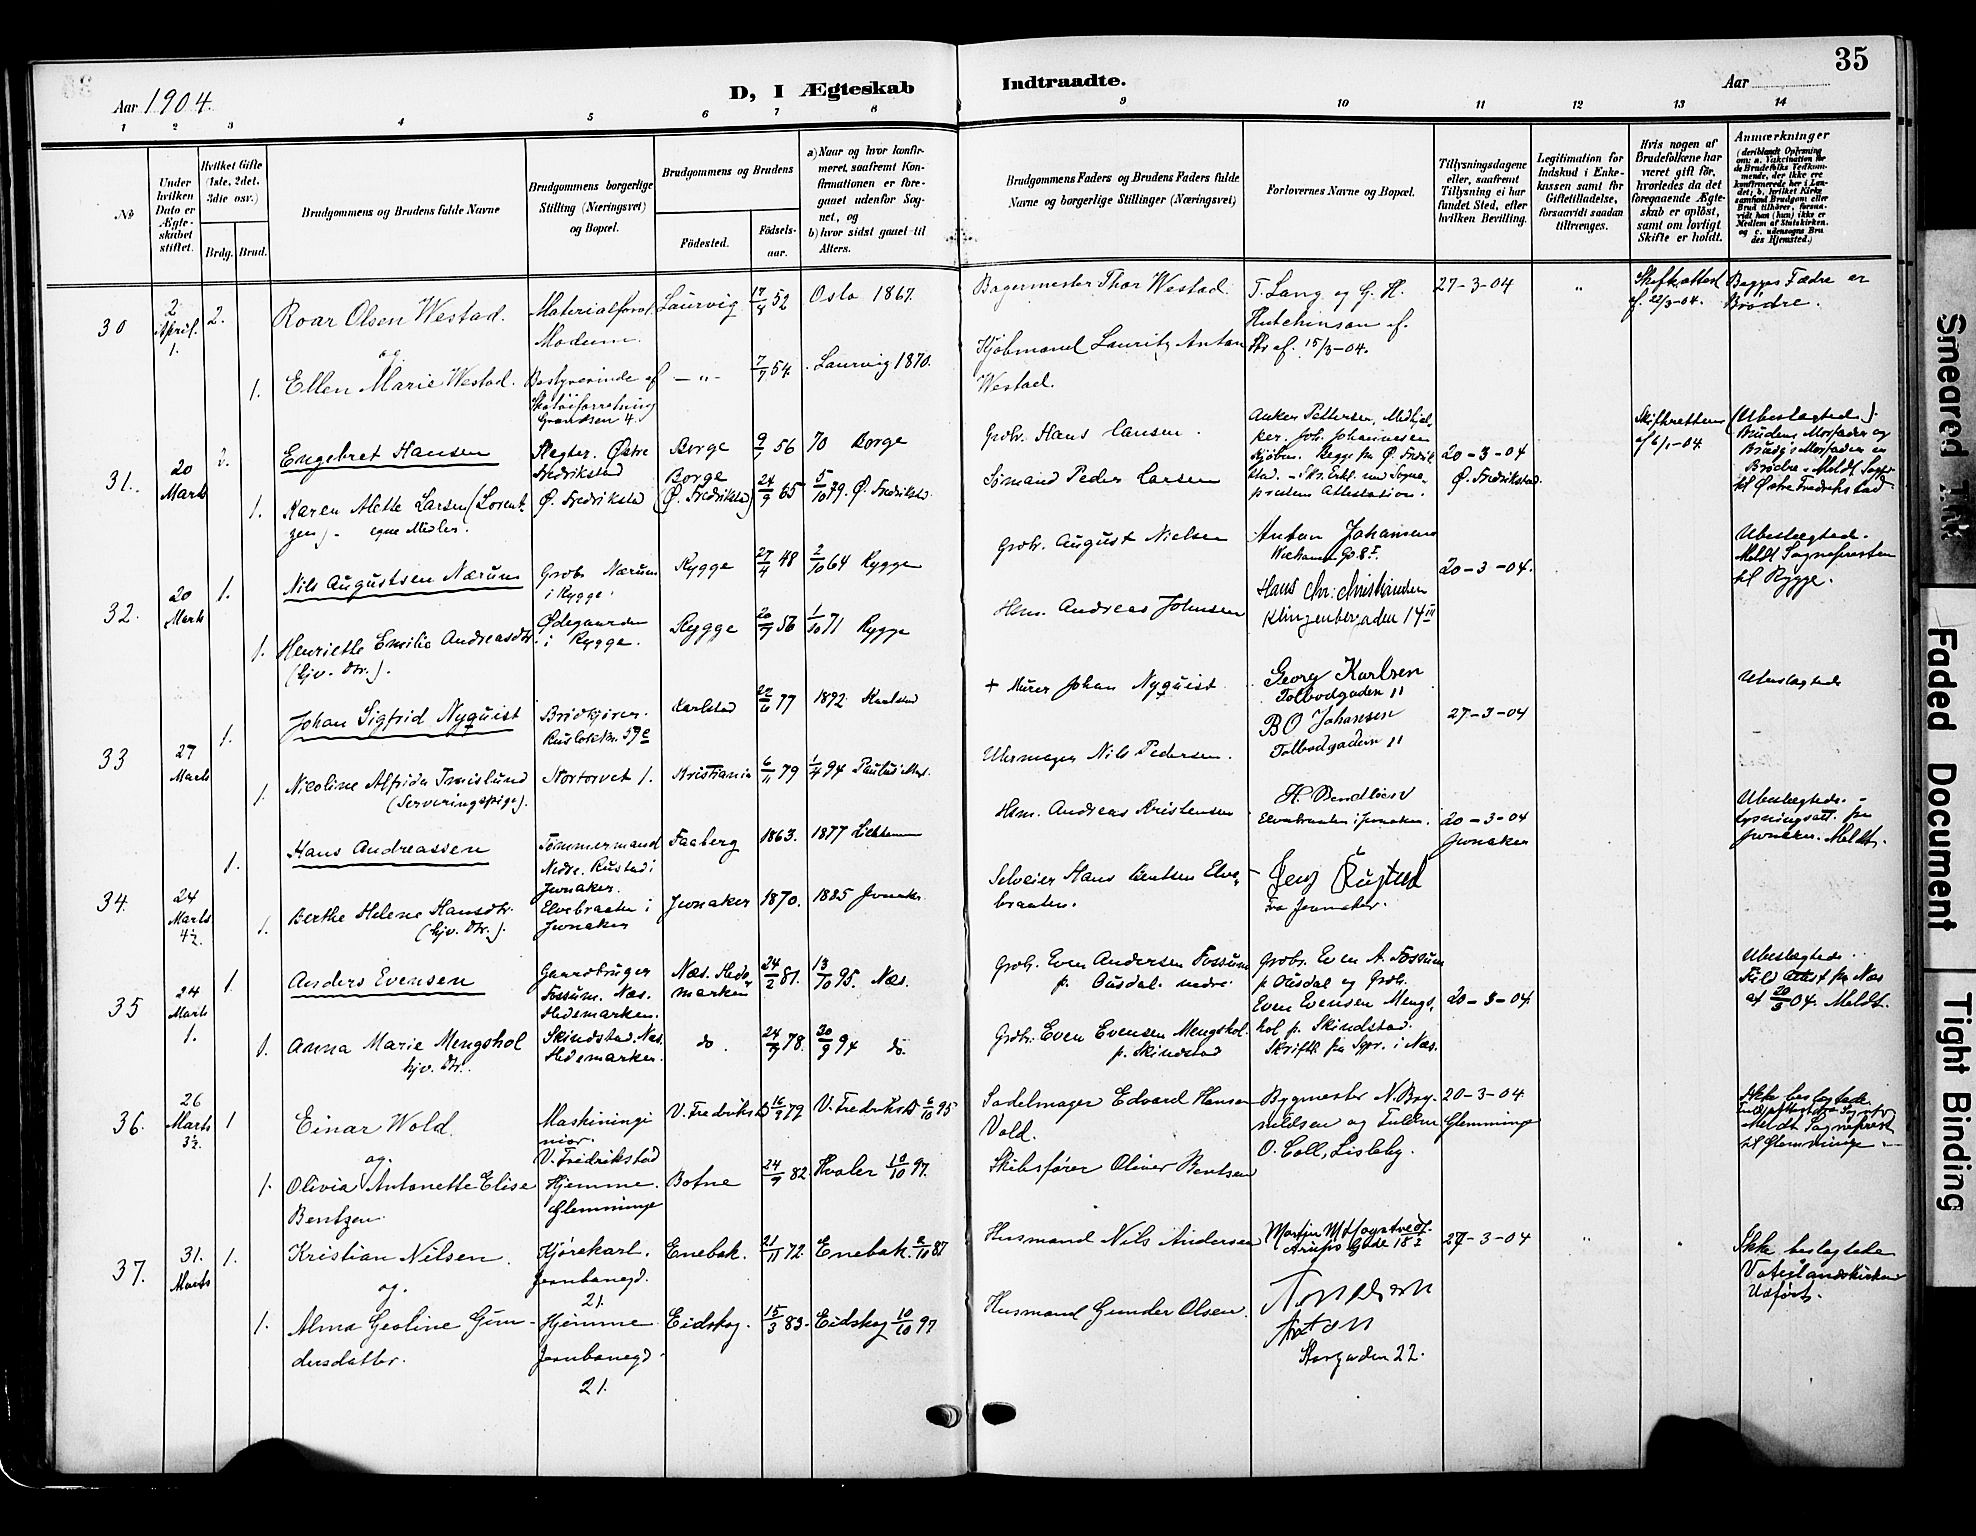 35
Aar 1904.
D, I Ægteskab Indtraadte.
Aar
1 2 3 4 5 6 7 8 9 10 11 12 13 14
№
Under hvilken Dato er Ægteskabet stiftet.
Hvilket Gifte (1ste, 2det, 3die osv.)
Brdg. Brud.
Brudgommens og Brudens fulde Navne
Brudgommens borgerlige Stilling (Næringsvei) og Bopæl.
Brudgommens og Brudens
Födested.
Födselsaar.
a) Naar og hvor konfirmeret, saafremt Konfirmationen er foregaaet udenfor Sognet, og
b) hvor sidst gaaet til Alters.
Brudgommens Faders og Brudens Faders fulde Navne og borgerlige Stillinger (Næringsvei)
Forlovernes Navne og Bopæl.
Tillysningsdagene eller, saafremt Tillysning ei har fundet Sted, efter hvilken Bevilling.
Legitimation for Indskud i Enkekassen samt for Giftetilladelse, forsaavidt saadan tiltrænges.
Hvis nogen af Brudefolkene har været gift för, hvorledes da det foregaaende Ægteskab er oplöst, samt om lovligt Skifte er holdt.
Anmærkninger
30
2 April. 1.
2.
Roar Olsen Westad.
Materialforv. Modum.
Laurvig
17/4 52
Oslo 1867.
Bagermester Thor Westad.
T. Lang og G. H. Hutchinson
27-3-04
"
Skifteattest af 22/3-04.
Begges Fædre er Brødre.
og
1.
Ellen Marie Westad.
Bestyrerinde af Skotøiforretning Grændsen 4.
— " —
7/7 54.
Laurvig 1870.
Kjøbmand Lauritz Anton Westad.
15/3-04.
31.
20 Marts
2.
Engebret Hansen
Slagter. Østre Fredrikstad
Borge
9/7 56
70 Borge
Grbr. Hans Hansen.
Anker Pettersen,
Joh. Johannesen
20-3-04 Ø. Fredrikstad.
Skifteretten af 6/1-04.
(Ubeslægtede).
Brudens Morfader og Brudg's Morfader er Brødre. Meldt Sogpr. til Østre Fredrikstad
1.
Karen Alette Larsen (Lorentzen). egne Midler.
Ø. Fredrikstad
Borge (Ø. Fredrikstad)
24/9 65
5/10 79. Ø. Fredrikstad.
Sømand Peder Larsen
32.
20 Marts
1.
Nils Augustsen Nærum
Grbr. Nærum i Rygge.
Rygge
27/4 48
2/10 64 Rygge
Grbr. August Nielsen
Anton Johansen
20-3-04.
Ubeslægtede.
Meldt Sognepresten til Rygge.
1.
Henriette Emilie Andreasdtr. (hjv. Dtr.).
Ødegaarden i Rygge.
Rygge
20/9 56
1/10 71 Rygge
Hsm. Andreas Johnsen
Hans Chr. Christiansen
Klingenberggaden 14 III
33
27 Marts
1.
Johan Sigfrid Nyquist
Brødkjører. Rusløkkv. 59 c
Karlstad
22/6 77
1892 Karlstad
+ Murer Johan Nyquist.
Georg Karlsen
Tolbodgaden 11
27-3-04
Ubeslægtede
1.
Nicoline Alfrida Tmislund
(Serveringspige).
Stortorvet 1.
Kristiania
6/11 79
1/4 94 Paulus
Uhrmager Nils Pedersen.
B O Johansen
Tolbodgaden 11
34.
24 Marts 4½.
1.
Hans Andreassen
Tømmermand Nedre. Rustad i Jevnaker.
Faaberg
1863.
1877
Hsm. Andreas Kristensen
H. Bendtsen
Elvebraaten i Jevnaker.
20-3-04 Jevnaker
Ubeslægtede. -
Lysningsatt. fra Jevnaker. Meldt.
1.
Berthe Helene Hansdtr. (hjv. Dtr.).
Elvebraaten i Jevnaker
Jevnaker
1870.
1885 Jevnaker.
Selveier Hans Bentsen Elvebraaten.
Jens Rustad
Fra Jevnaker.
35
24 Marts 1.
1
Anders Evensen
Gaardbruger Fossum. Næs. Hedemarken.
Næs. Hedemarken
24/2 81.
13/10 95. Næs.
Grbr. Even Andersen Fossum p. Ousdal nedre.
Grbr. Even A. Fossum p Ousdal og Grbr. Even Evensen Mengshol p. Skindstad.
20-3-04
Ubeslægtede.
Fuld Attest fra Næs af 20/3 04. Meldt.
1.
Anna Marie Mengshol hjv. Dtr.
Skindstad Næs. Hedemarken.
do.
24/9 78.
30/9 94 do.
Grbr. Even Evensen Mengshol. p. Skindstad
Skriftl. fra Sgpr. i Næs.
36.
26 Marts 3½.
1
Einar Wold.
Maskiningeniør. V. Fredrikstad
V. Fredrikstad
16/9 79
V. Fredrikstad 6/10 95
Sadelmager Edvard Hansen Vold.
Bygmester N. Brynildsen og Fuldm. O. Coll, Lisleby.
20-3-04 Glemminge
Ikke beslægtede.
Meldt Sogneprest til Glemminge
og.
1.
Olivia Antonette Elise Bentzen
Hjemme. Glemminge
Botne
24/9 82
Hvaler 10/10 97.
Skibsfører Oliver Bentsen
37.
31. Marts
1.
Kristian Nilsen.
Kjørekarl. Jernbanegd. 21.
Enebak.
21/11 72.
Enebak. 2/10 87
Husmand Nils Andersen
27-3-04
"
"
Ikke beslægtede
Vaterlandskirken
Udført.
og.
1.
Alma Geoline Gundersdatter.
Hjemme. Jernbanegd. 21.
Eidskog.
15/3 83.
Eidskog 10/10 97
Husmand Gunder Olsen.
Anton
Storgaden 22.
Smeared Ink
Faded Document
Tight Binding